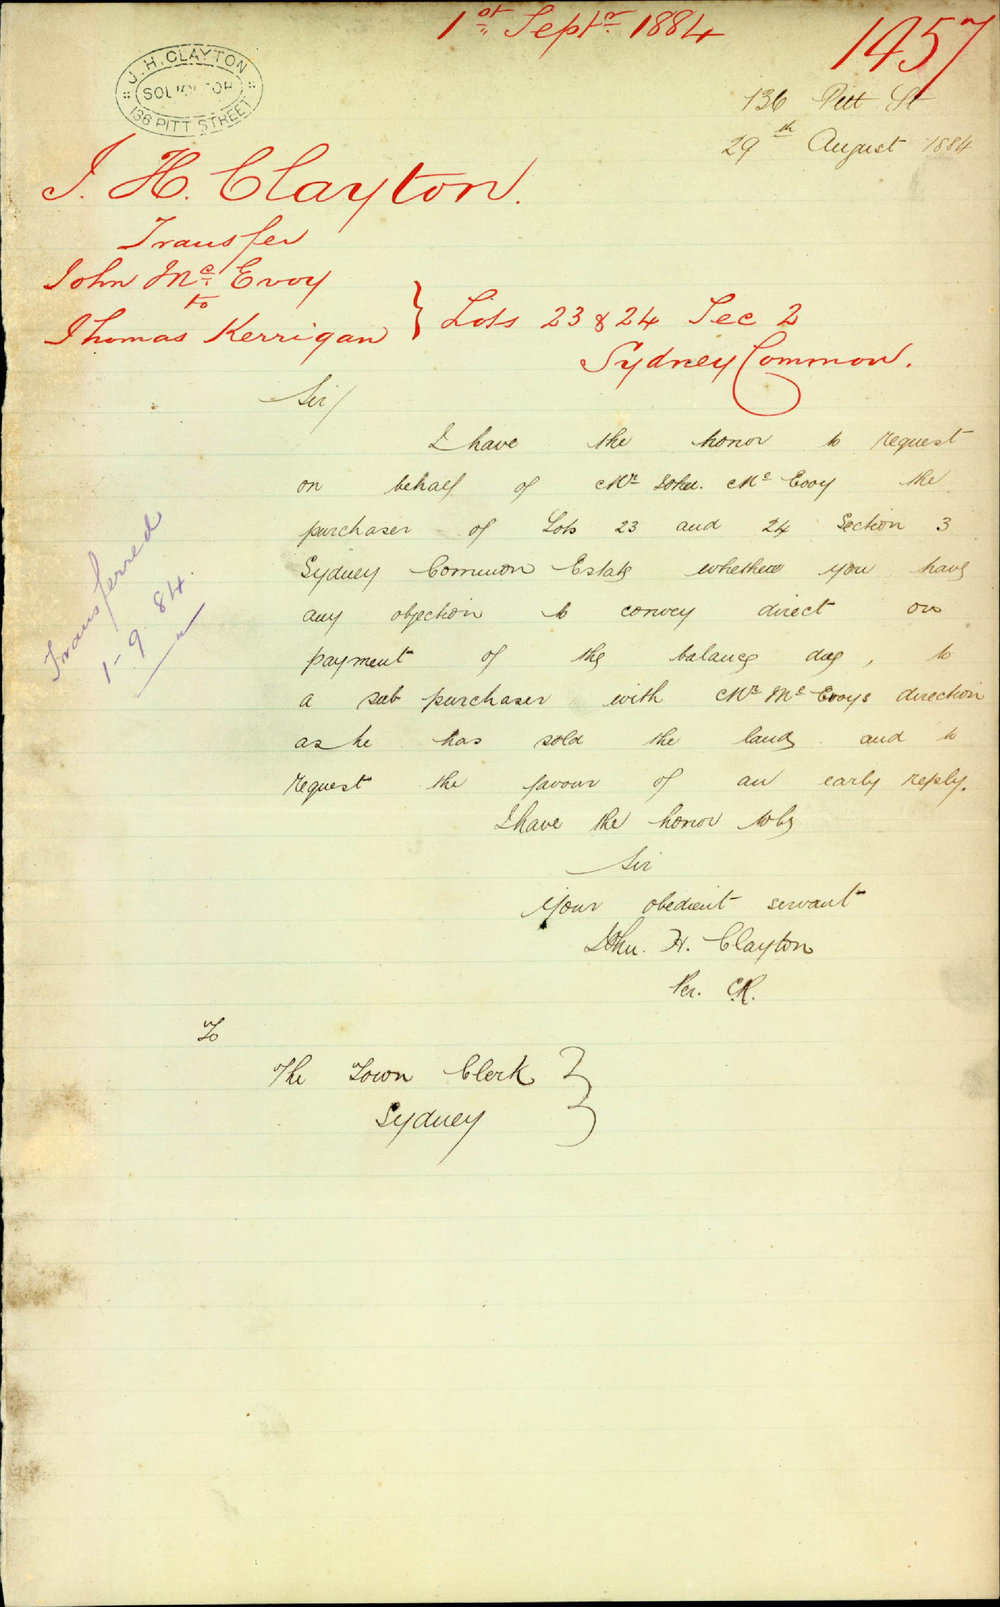 1st Septr 1884
1457
J. H. CLAYTON
SOLICITOR
136 PITT STREET
136 Pitt St
29th August 1884
J. H. Clayton.
Transfer
John Mc Evoy
to
Thomas Kerrigan } Lots 23 & 24 Sec 2
Sydney Common.
Sir/
I have the honor to request
on behalf of Mr John. Mc Evoy the
purchaser of Lots 23 and 24 Section 3
Sydney Common Estate whether you have
any objection to convey direct on
payment of the balance due, to
a sub purchaser with Mr Mc Evoys direction
as he has sold the land and to
request the favour of an early reply.
I have the honor to be
Sir
Your obedient servant
John. H. Clayton
Per. C.R.
Transferred
1-9 84
To
The Town Clerk }
Sydney